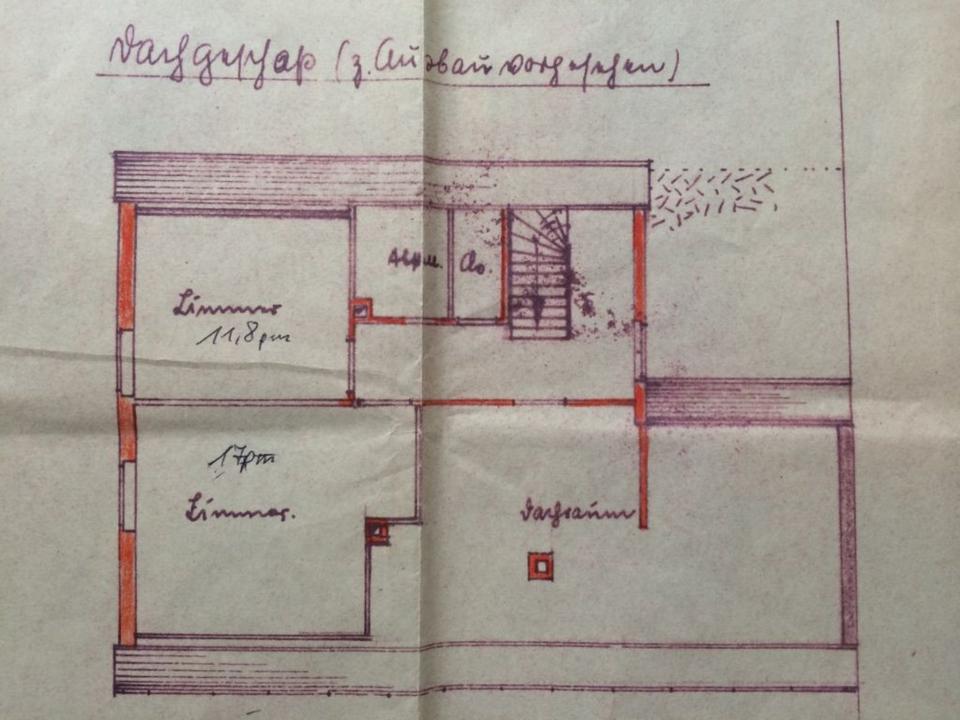 Dachgeschoß (z. Ausbau vorgesehen)
Abstellr. Klo.
Zimmer
11,8 qm
17 qm
Zimmer.
Dachraum